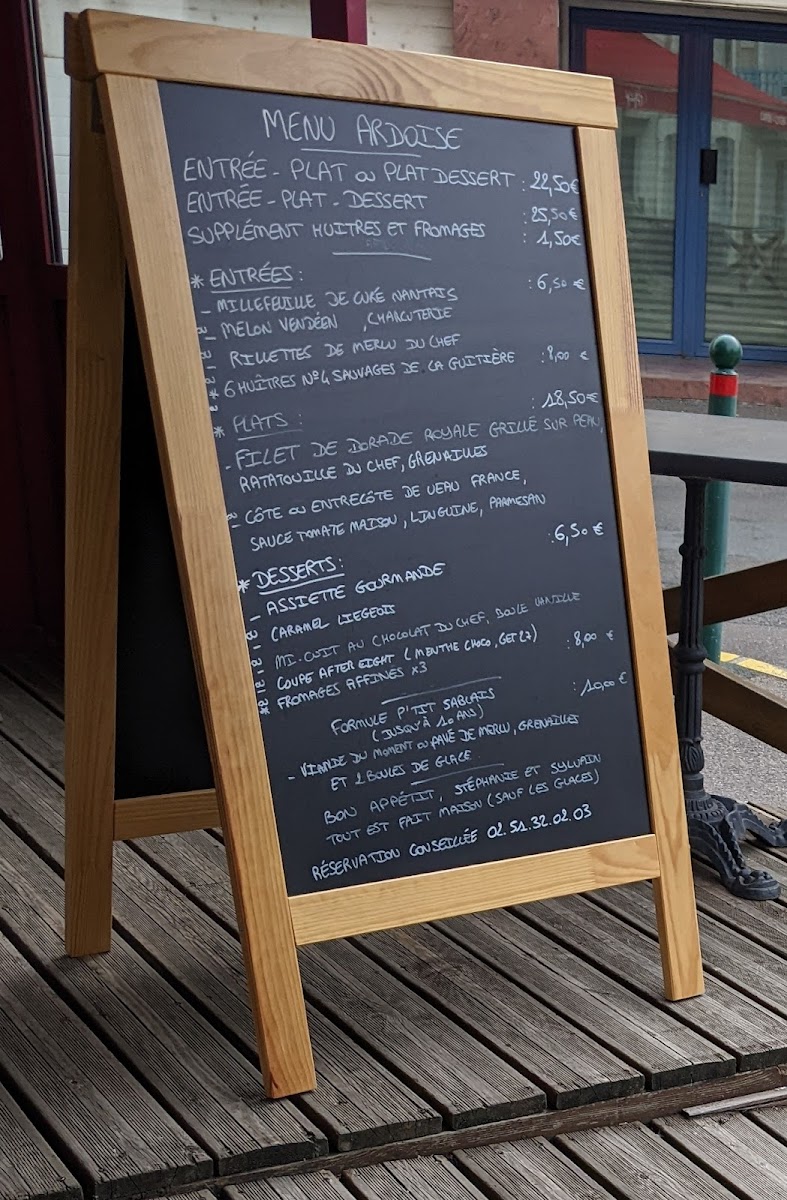 MENU ARDOISE
ENTRÉE - PLAT OU PLAT DESSERT : 22,50€
ENTRÉE - PLAT - DESSERT : 25,50€
SUPPLÉMENT HUITRES ET FROMAGES : 1,50€
* ENTRÉES : : 6,50 €
- MILLEFEUILLE DE CURÉ NANTAIS
- MELON VENDÉEN , CHARCUTERIE
- RILLETTES DE MERLU DU CHEF
* 6 HUÎTRES N°4 SAUVAGES DE LA GUITIÈRE : 8,00 €
* PLATS : : 18,50€
- FILET DE DORADE ROYALE GRILLÉ SUR PEAU,
RATATOUILLE DU CHEF, GRENAILLES
- CÔTE OU ENTRECÔTE DE VEAU FRANCE,
SAUCE TOMATE MAISON, LINGUINE, PARMESAN
* DESSERTS : : 6,50 €
- ASSIETTE GOURMANDE
- CARAMEL LIEGEOIS
- MI-CUIT AU CHOCOLAT DU CHEF, BOULE VANILLE
- COUPE AFTER EIGHT (MENTHE CHOCO, GET 27)
* FROMAGES AFFINÉS X3 : 8,00 €
FORMULE P'TIT SABLAIS : 10,00€
(JUSQU'À 10 ANS)
- VIANDE DU MOMENT OU PAVÉ DE MERLU, GRENAILLES
ET 2 BOULES DE GLACE
BON APPÉTIT, STÉPHANIE ET SYLVAIN
TOUT EST FAIT MAISON (SAUF LES GLACES)
RÉSERVATION CONSEILLÉE 02.51.32.02.03